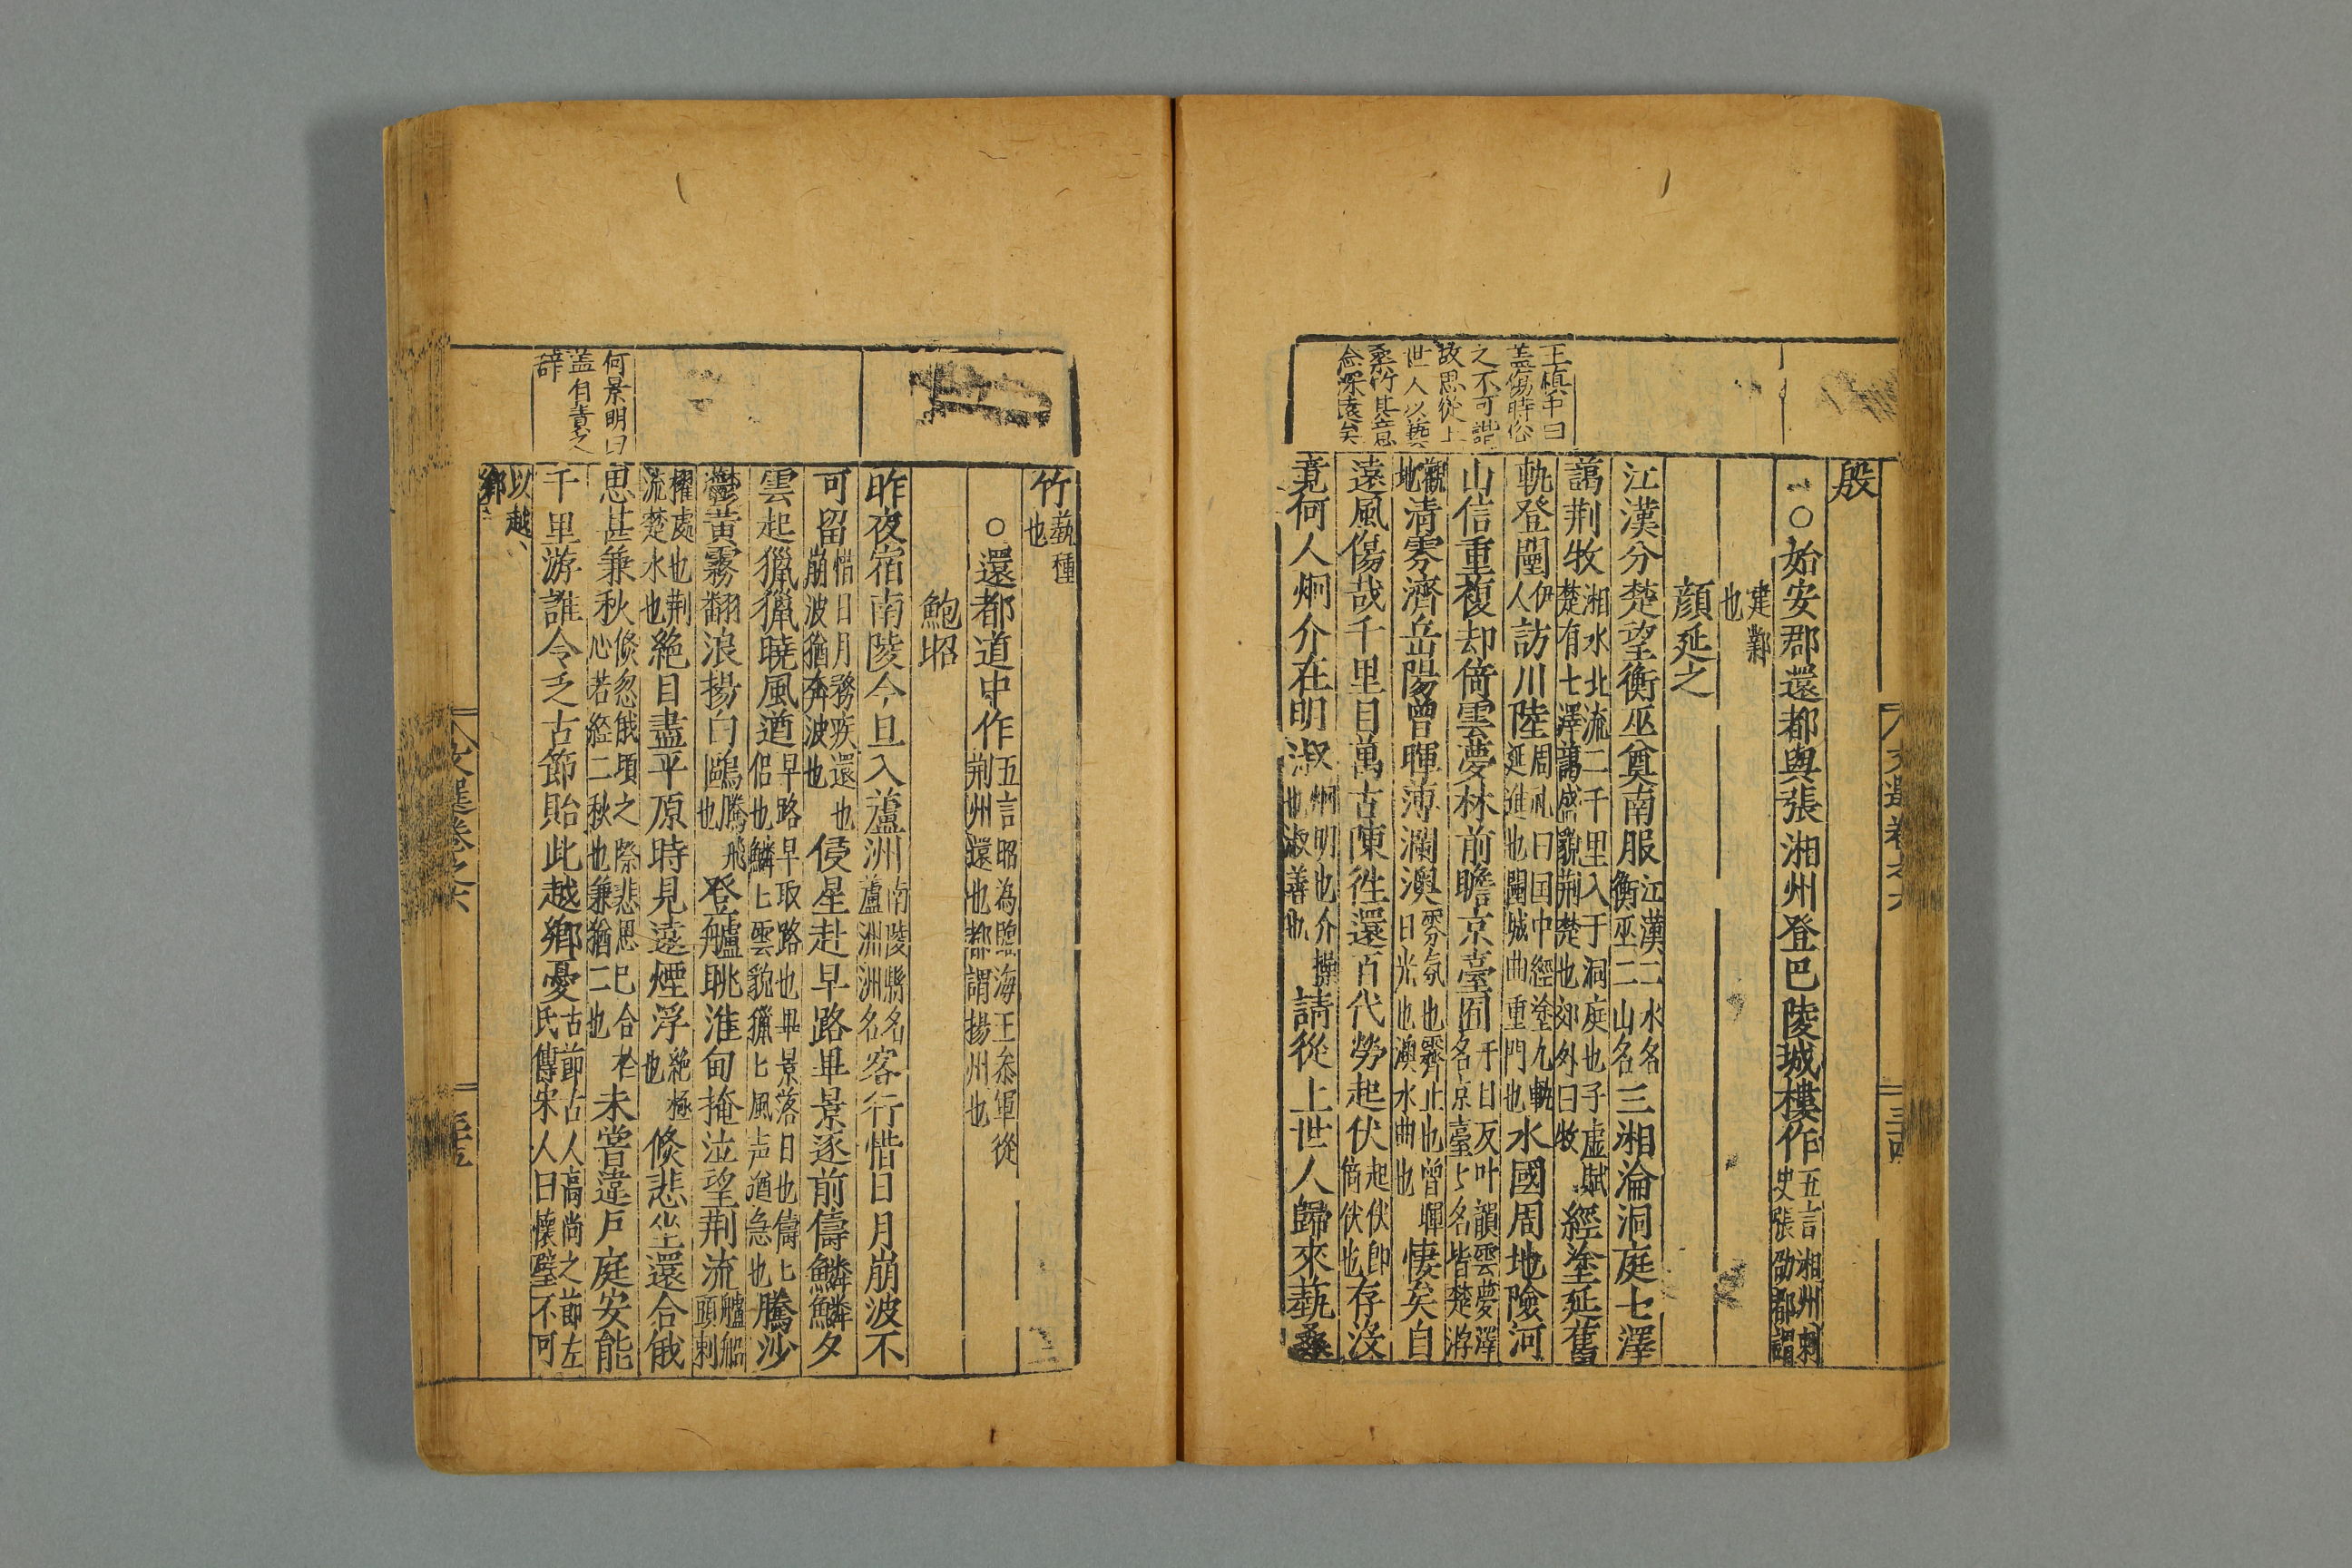 文選卷之六
三四
王慎中曰
蓋傷時俗
之不可諧
故思從上
世人以藝
桑竹其意
念深遠矣
殷
○始安郡還都與張湘州登巴陵城樓作五言湘州刺史張劭都謂
建鄴也
顔延之
江漢分楚望衡巫奠南服江漢二水名衡巫二山名三湘淪洞庭七澤
藹荆牧湘水北流二千里入于洞庭也子虛賦楚有七澤藹盛貌荆楚也郊外曰牧經塗延舊
軌登闉伊人訪川陸周礼曰国中經塗九軌延進也闉城曲重門也水國周地險河
山信重複却倚雲夢林前瞻京臺囿于目反叶韻雲夢澤名京臺臺名皆楚游
觀地清雰濟岳陽曾暉薄瀾澳雰氛也霽止也曾暉日光也澳水曲也悽矣自
遠風傷哉千里目萬古陳徃還百代勞起伏起伏即倚伏也存沒
竟何人炯介在明淑炯明也介操也淑善也請從上世人歸來蓺桑
竹蓺種也
○還都道中作五言昭為臨海王叅軍從荆州還也都謂揚州也
鮑昭
昨夜宿南陵今旦入蘆洲南陵縣名蘆洲洲名客行惜日月崩波不
可留惜日月務疾還也崩波猶奔波也侵星赴早路畢景逐前儔鱗鱗夕
雲起獵獵曉風遒早路早取路也畢景落日也儔匕侣也鱗匕雲貌獵匕風声遒急也騰沙
鬱黄霧翻浪揚白鷗騰飛也登艫眺淮甸掩泣望荆流艫船頭刺
櫂處也荆流楚水也絶目盡平原時見遠煙浮絶極也倐悲坐還合俄
思甚兼秋倐忽俄頃之際悲思已合於心若經二秋也兼猶二也未嘗違戸庭安能
千里游誰令乏古節貽此越鄉憂古節古人高尚之節左氏傳宋人曰懷璧不可
以越鄉
何景明曰
蓋自責之
辭
文選卷之六
三五